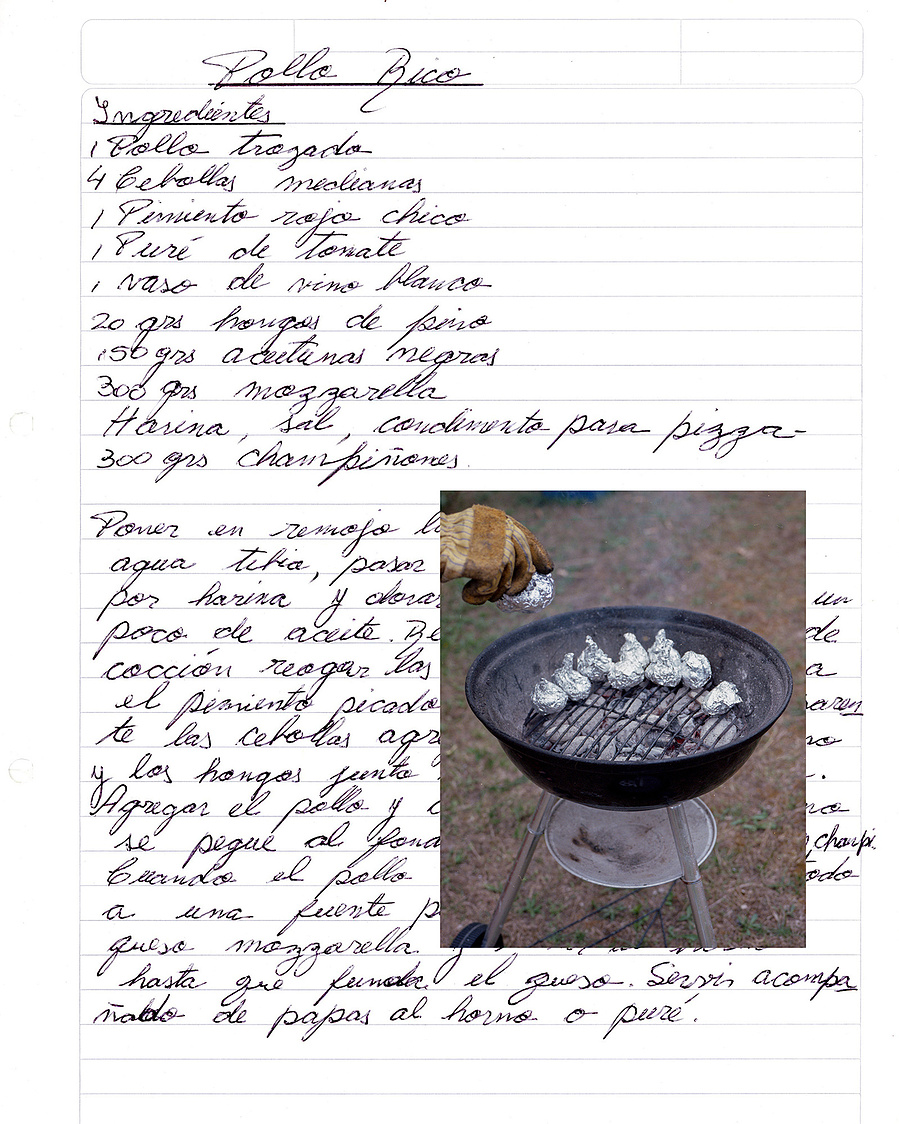 Pollo Rico
Ingredientes
1 Pollo trozado
4 Cebollas medianas
1 Pimiento rojo chico
1 Puré de tomate
1 vaso de vino blanco
20 grs hongos de pino
150 grs aceitunas negras
300 grs mozzarella
Harina, sal, condimento para pizza-
300 grs champiñones.
Poner en remojo
agua tibia, pasar
por harina y un
poco de aceite. de
cocción reogar las a
el pimiento picado
te las cebollas no
y los hongos junto .
Agregar el pollo y no
se pegue al champi
Cuando el pollo todo
a una fuente
queso mozzarella.
hasta que funda el queso. Servir acompa
ñado de papas al horno o puré.